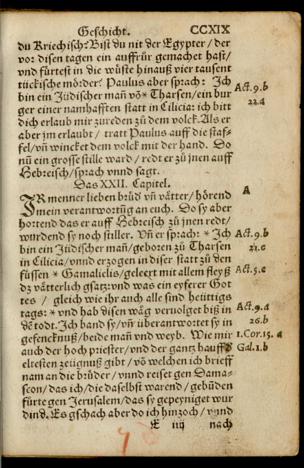 Geschicht. CCXIX
du Kriechisch? Bist du nit der Egypter / der
vor disen tagen ein auffrür gemachet hast /
vnd fürtest in die wüste hinauß vier tausent
tückische mörder? Paulus aber sprach: Ich
bin ein Jüdischer mañ võ * Tharsen / ein bur
ger einer namhafften statt in Cilicia: ich bitt
dich erlaub mir zureden zů dem volck. Als er
aber im erlaubt / tratt Paulus auff die staf-
fel / vñ wincket dem volck mit der hand. Do
nů ein grosse stille ward / redt er zů jnen auff
Hebreisch / sprach vnnd sagt.
Act. 9. b
22. a
Das XXII. Capitel.
IR menner lieben brüd vñ vätter / hörend
mein verantwortůg an euch. Do sy aber
hortend das er auff Hebreisch zů jnen redt /
wurdend sy noch stiller. Vñ er sprach: * Ich
bin ein Jüdischer mañ / geboren zů Tharsen
in Cilicia / vnnd erzogen in diser statt zů den
füssen * Gamalielis / geleert mit allem fleyß
dz vätterlich gsatz: vnd was ein eyferer Got
tes / gleich wie jhr auch alle sind heüttigs
tags: * vnd hab disen wäg veruolget biß in
dẽ todt. Ich band sy / vñ überantwortet sy in
gefencknuß / beide mañ vnd weyb. Wie mir
auch der hoch priester / vnd der gantz hauff d
eltesten zeügnuß gibt / võ welchen ich brieff
nam an die brüder / vnnd reiset gen Damas-
scon / das ich / die daselbst warend / gebũden
fürte gen Jerusalem / das sy gepeyniget wur
dind. Es gschach aber do ich hinzoch / vnnd
A
Act. 9. b
21. e
Act. 5. e
Act. 9. a
26. b
1. Cor. 15. a
Gal. 1. b
E iiij nach